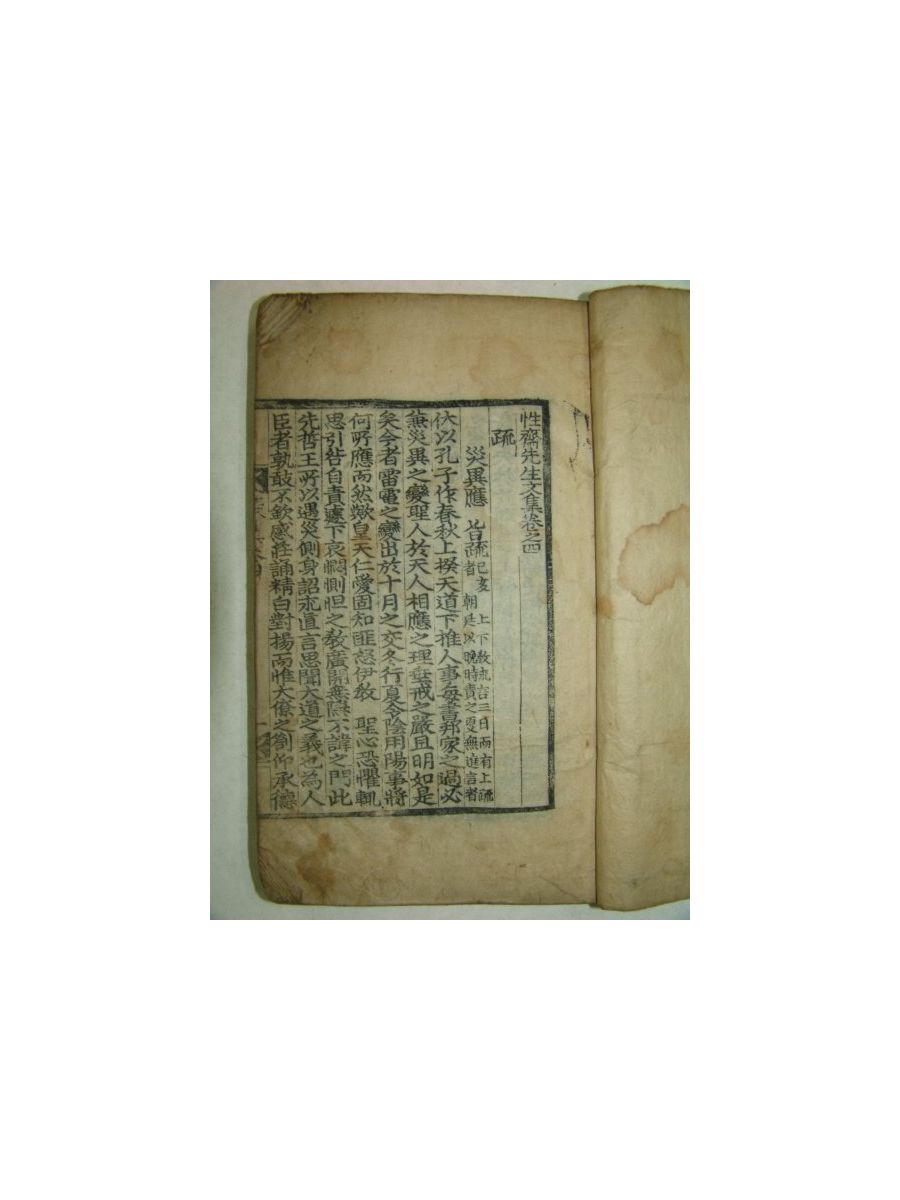 性齋先生文集卷之四
疏
災異應 旨疏己亥 上下敎求言三日而有上疏者 朝廷以晩時責之更無進言者
伏以孔子作春秋上揆天道下推人事每書邦家之過必
兼災異之變聖人於天人相應之理垂戒之嚴且明如是
矣今者雷電之變出於十月之交冬行夏令陰用陽事將
何所應而然歟皇天仁愛固知匪怒伊敎 聖心恐懼輒
思引咎自責遽下哀憫惻怛之敎廣開無隱不諱之門此
先哲王所以遇災側身詔求直言思聞大道之義也為人
臣者孰敢不欽感莊誦精白對揚而惟大僚之箚仰承德